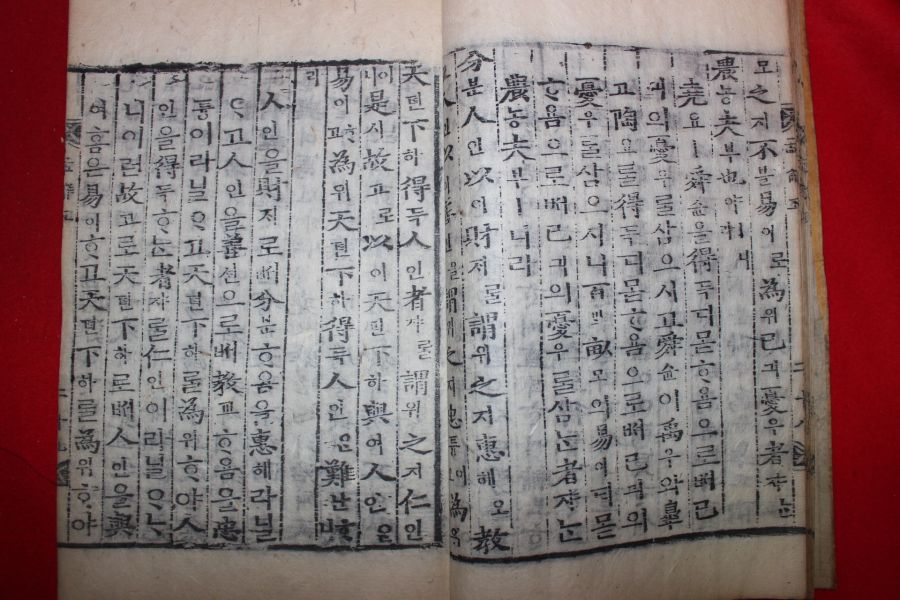 모之지不블易이로為위己긔憂우者쟈ᄂᆞᆫ
農농夫부也야ㅣ
堯요ㅣ舜슌을得득디몯ᄒᆞ욤으로ᄡᅥ己
긔의憂우ᄅᆞᆯ삼으시고舜슌이禹우와皐
고陶요ᄅᆞᆯ得득디몯ᄒᆞ욤으로ᄡᅥ己긔의
憂우ᄅᆞᆯ삼으시니百ᄇᆡᆨ畝모의易이티몯
ᄒᆞ욤으로ᄡᅥ己긔의憂우ᄅᆞᆯ삼ᄂᆞᆫ者쟈ᄂᆞᆫ
農농夫부ㅣ니라
分분人인以이財ᄌᆡᄅᆞᆯ謂위之지惠혜오教
人인以이善션을謂위之지忠튱이오為위
天텬下하得득人인者쟈ᄅᆞᆯ謂위之지仁인
이니是시故고로以이天텬下하與여人인은
易이ᄒᆞ고為위天텬下하得득人인은難난ᄒᆞ
리
人인을財ᄌᆡ로ᄡᅥ分분홈을惠혜라닐
ᄋᆞ고人인을善션으로ᄡᅥ教교홈을忠
튱이라닐ᄋᆞ고天텬下하ᄅᆞᆯ為위ᄒᆞ야人
인을得득ᄒᆞᄂᆞᆫ者쟈ᄅᆞᆯ仁인이라닐ᄋᆞᄂᆞ
니이런故고로天텬下하로ᄡᅥ人인을與
여홈은易이ᄒᆞ고天텬下하ᄅᆞᆯ為위ᄒᆞ야